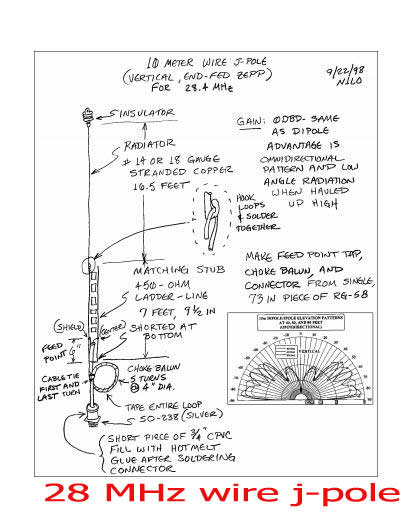 10 METER WIRE J-POLE
(VERTICAL, END-FED ZEPP)
FOR 28.4 MHz
9/22/98
N1LO
INSULATOR
RADIATOR
# 14 OR 18 GAUGE
STRANDED COPPER
16.5 FEET
GAIN: 0DBD- SAME
AS DIPOLE
ADVANTAGE IS
OMNIDIRECTIONAL
PATTERN AND LOW
ANGLE RADIATION
WHEN HAULED
UP HIGH
HOOK
LOOPS
& SOLDER
TOGETHER
MATCHING STUB
450-OHM
LADDER-LINE
7 FEET, 9½ IN
SHORTED AT
BOTTOM
MAKE FEED POINT TAP,
CHOKE BALUN, AND
CONNECTOR FROM SINGLE,
73 IN PIECE OF RG-58
SHIELD
CENTER
FEED
POINT 6"
CABLE TIE
FIRST AND
LAST TURN
CHOKE BALUN
5 TURNS
@ 4" DIA.
TAPE ENTIRE LOOP
SO-238 (SILVER)
SHORT PIECE OF ¾" CPVC
FILL WITH HOTMELT
GLUE AFTER SOLDERING
CONNECTOR
10m DIPOLE/POLE ELEVATION PATTERNS
(OMNIDIRECTIONAL)
VERTICAL
28 MHz wire j-pole